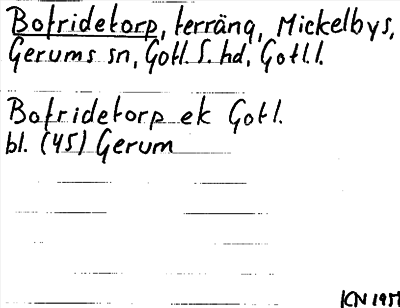 Botridetorp, terräng, Mickelbys,
Gerums sn, Gotl. S. hd, Gotl. l.
Botridetorp ek Gotl.
bl. (45) Gerum